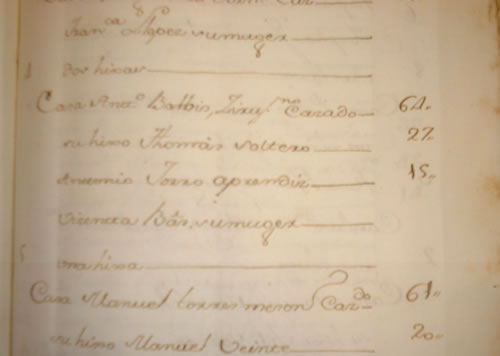 Fran.ca Lopez su muger
dos hixas
Casa Ant.o Balbis, Ziruj.no Casado 64.
su hixo Thomas soltero 22
Antonio Torro aprendiz 15.
Vicenta su muger
una hixa
Casa Manuel Torres meson Cas.do 61.
su hixo Manuel Veinte 20.